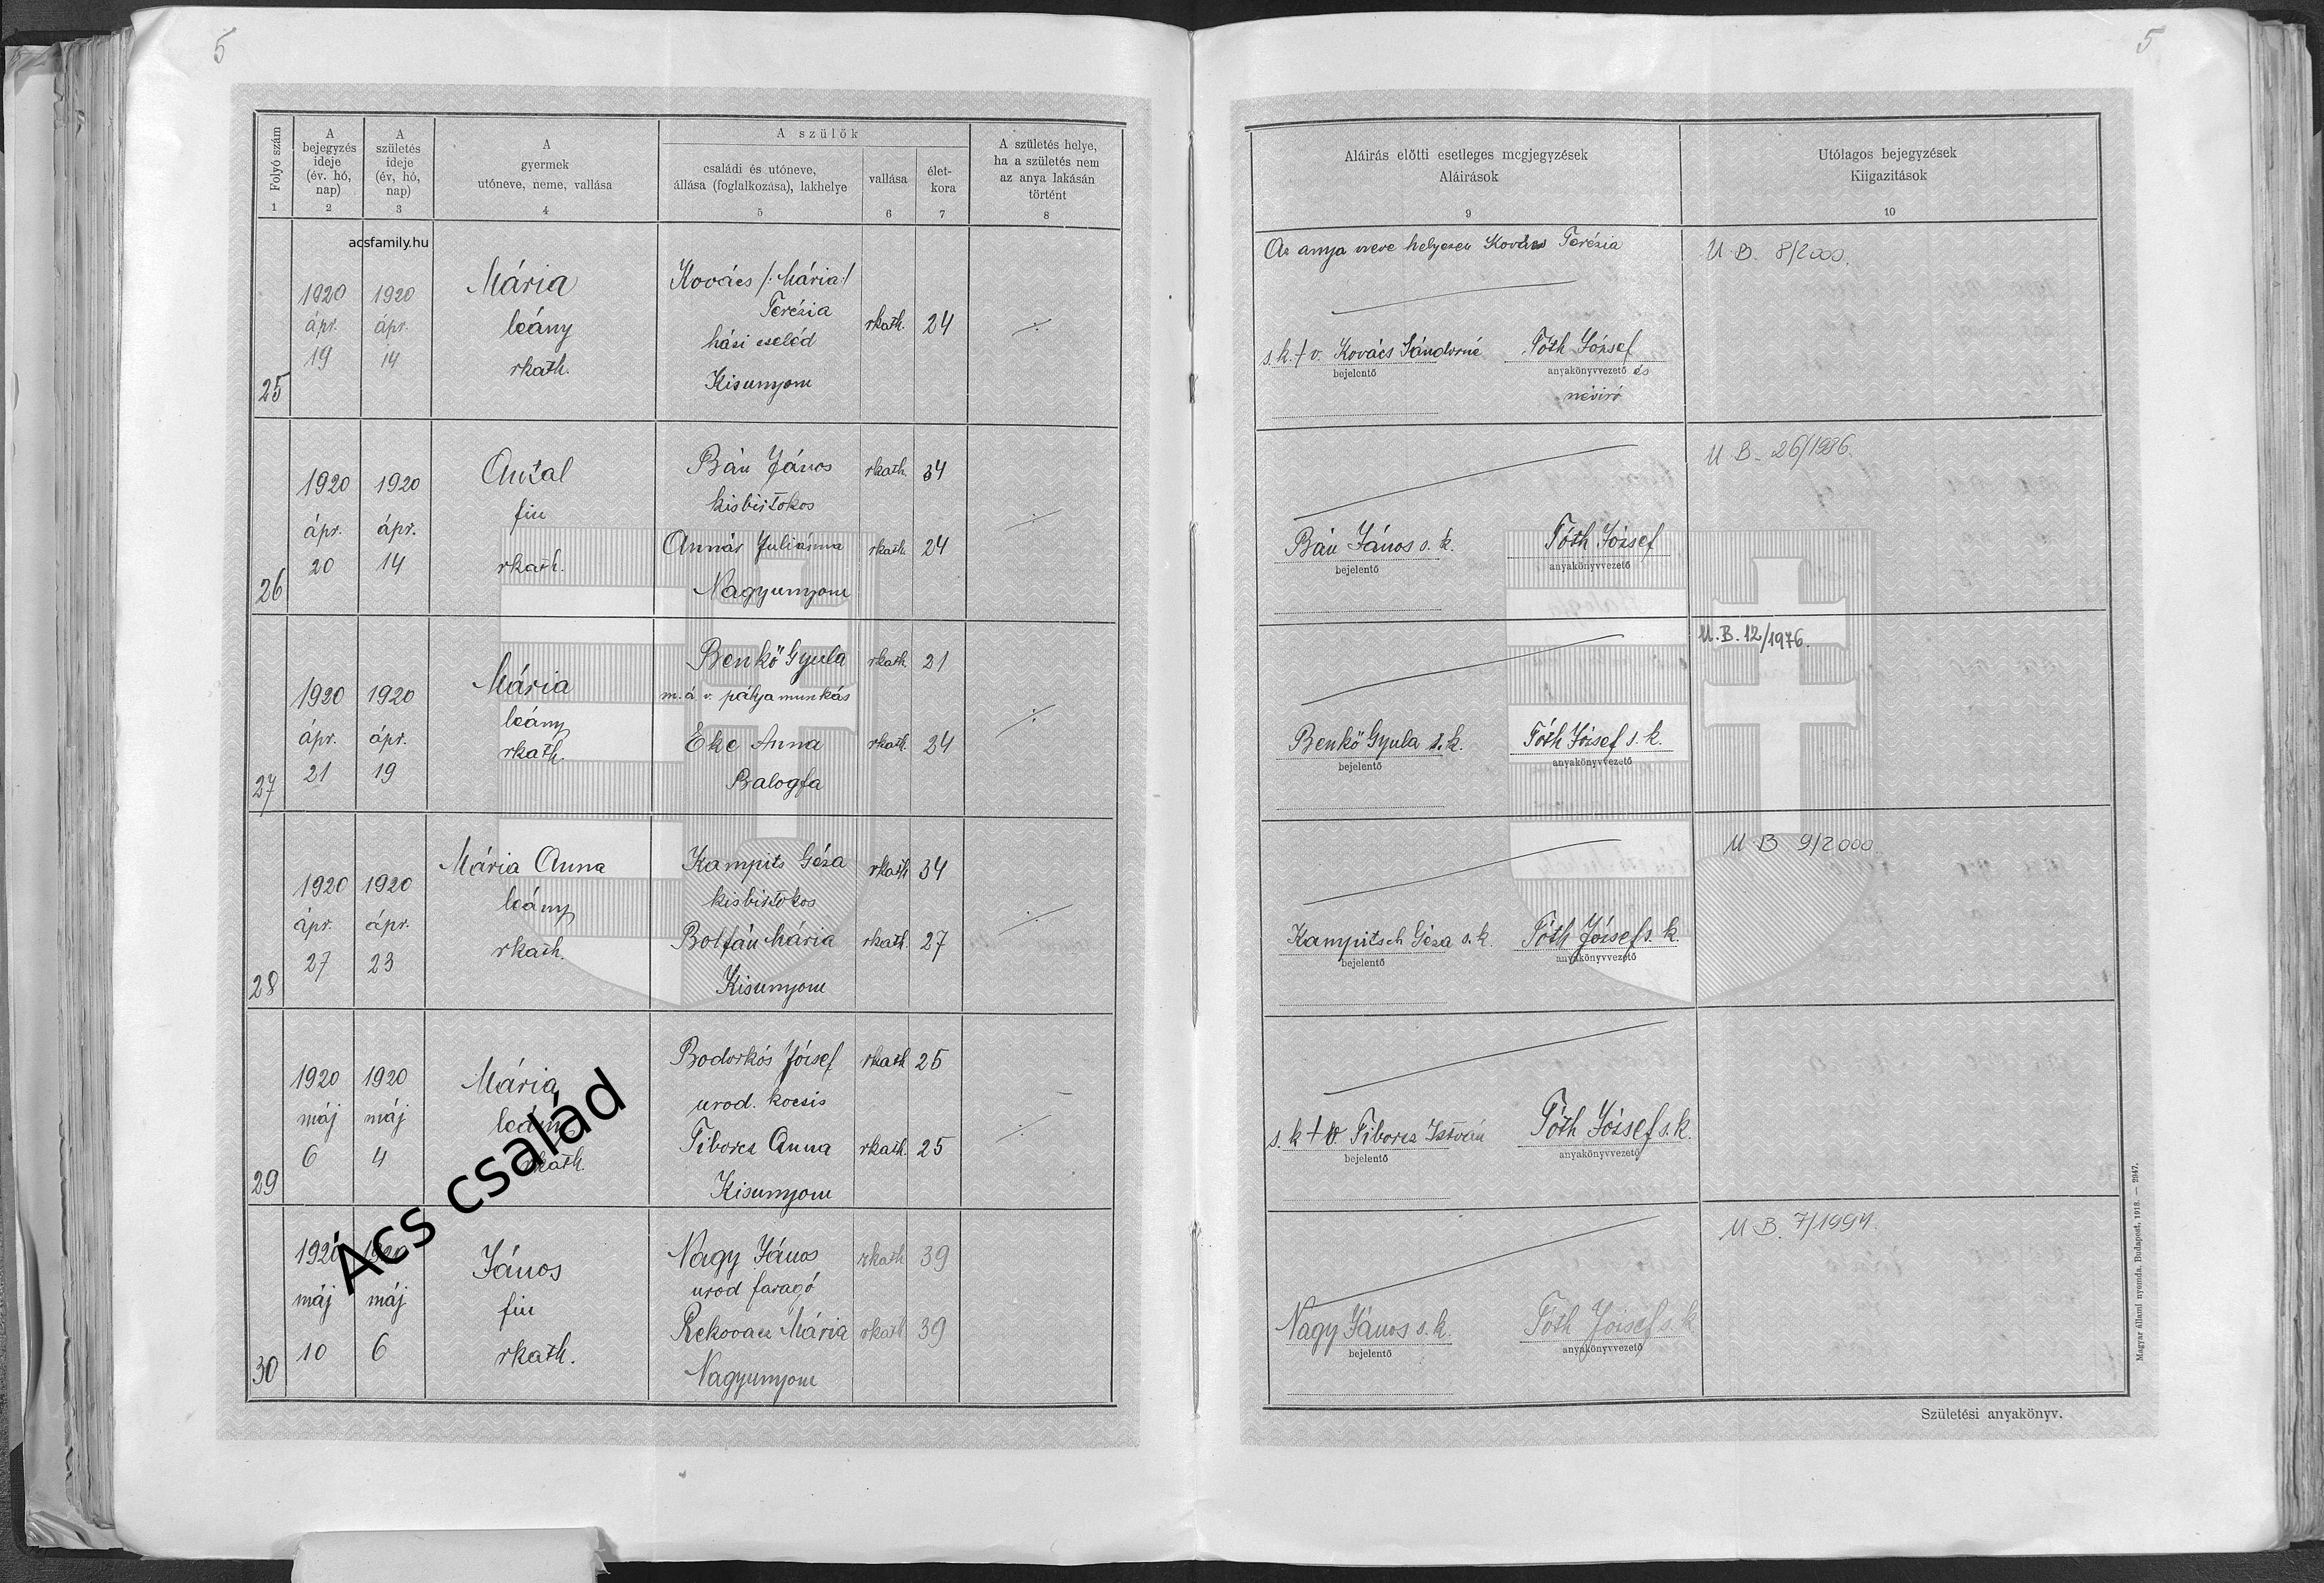 5
5
Folyó szám
1
A
bejegyzés
ideje
(év. hó,
nap)
2
A
születés
ideje
(év, hó,
nap)
3
A
gyermek
utóneve, neme, vallása
4
A szülők
családi és utóneve,
állása (foglalkozása), lakhelye
5
vallása
6
élet-
kora
7
A születés helye,
ha a születés nem
az anya lakásán
történt
8
Aláirás előtti esetleges megjegyzések
Aláirások
9
Utólagos bejegyzések
Kiigazitások
10
acsfamily.hu
25
1920
ápr.
19
1920
ápr.
14
Mária
leány
rkath.
Kovács /: Mária :/
Terézia
házi cseléd
Kisunyom
rkath.
24
Az anya neve helyesen Kovács Terézia
s.k. + v. Kovács Sándorné
bejelentő
Tóth József
anyakönyvvezető és
névíró
U. B. 8/2000.
26
1920
ápr.
20
1920
ápr.
14
Antal
fiu
rkath.
Bán János
kisbirtokos
Annás Julianna
Nagyunyom
rkath.
34
rkath.
24
Bán János s. k.
bejelentő
Tóth József
anyakönyvvezető
U B. 26/1986.
27
1920
ápr.
21
1920
ápr.
19
Mária
leány
rkath.
Benkő Gyula
m. á. v. pályamunkás
Eke Anna
Balogfa
rkath
21
rkath.
24
Benkő Gyula s. k.
bejelentő
Tóth József s. k.
anyakönyvvezető
U. B. 12/1976.
28
1920
ápr.
27
1920
ápr.
23
Mária Anna
leány
rkath.
Kampits Géza
kisbirtokos
Bolfán Mária
Kisunyom
rkath
34
rkath.
27
Kampitsch Géza s. k.
bejelentő
Tóth József s. k.
anyakönyvvezető
U B 9/2000.
29
1920
máj
6
1920
máj
4
Mária
leány
rkath.
Bodorkós József
urod. kocsis
Tiborcz Anna
Kisunyom
rkath
25
rkath.
25
s. k + v Tiborcz István
bejelentő
Tóth József s. k.
anyakönyvvezető
30
1920
máj
10
1920
máj
6
János
fiu
rkath.
Nagy János
urod faragó
Rekovacz Mária
Nagyunyom
rkath
39
rkath
39
Nagy János s. k.
bejelentő
Tóth József s. k
anyakönyvvezető
U B. 7/1994.
Ács család
Születési anyakönyv.
Magyar állami nyomda, Budapest, 1918. — 2947.